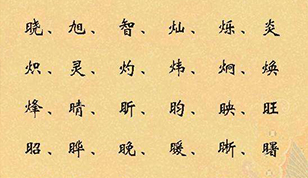 晓、旭、智、灿、烁、炎
炽、灵、灼、炜、炯、焕
烽、晴、昕、昀、映、旺
昭、晔、晚、暖、晰、曙